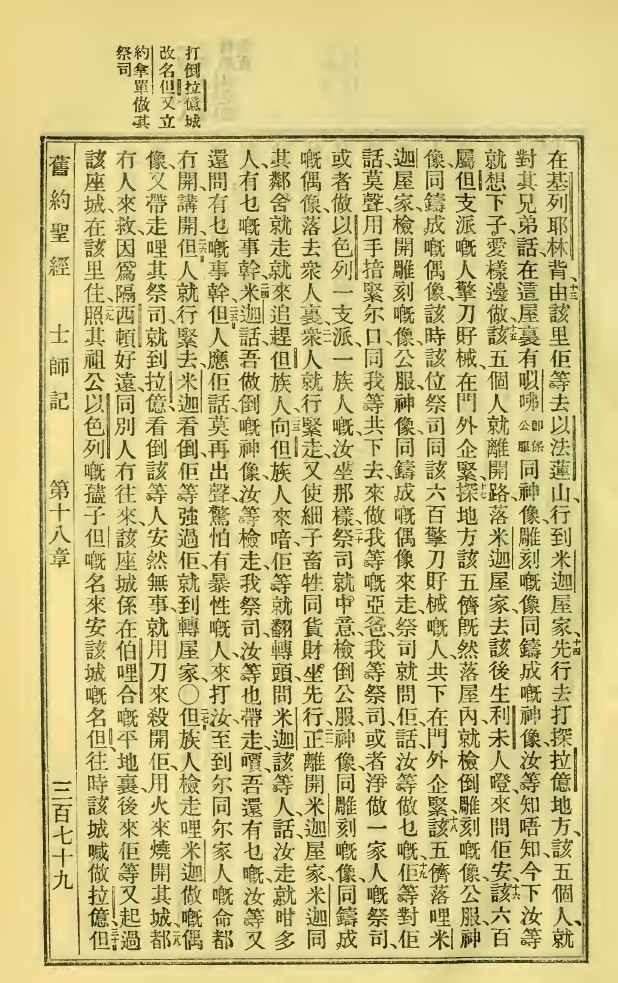 打倒拉億城
改名但又立
約拿單做其
祭司
在基列耶林背、十三由該里佢等去以法蓮山、行到米迦屋家、十四先行去打探拉億地方、該五個人、就
對其兄弟話、在這屋裏有㕽咈即係公服同神像、雕刻嘅像、同鑄成嘅神像、汝等知唔知、今下汝等
就想下子、愛樣邊做、十五該五個人就離開路、落米迦屋家去、該後生利未人嗌來問佢安、十六該六百
屬但支派嘅人、擎刀𢦏械、在門外企緊、十七探地方該五儕、旣然落屋內、就檢倒雕刻嘅像、公服、神
像、同鑄成嘅偶像、該時該位祭司、同該六百擎刀𢦏械嘅人、共下在門外企緊、十八該五儕落哩米
迦屋家、檢開雕刻嘅像、公服、神像、同鑄成嘅偶像來走、祭司就問佢話、汝等做乜嘅、十九佢等對佢
話、莫聲、用手揞緊尔口、同我等共下去、來做我等嘅亞爸、我等祭司、或者淨做一家人嘅祭司、
或者做以色列一支派一族人嘅、汝坐那樣、二十祭司就中意、檢倒公服、神像、同雕刻嘅像、同鑄成
嘅偶像、落去衆人裏、二一衆人就行緊走、又使細子畜牲同貨財、坐先行、二二正離開米迦屋家、米迦同
其鄰舍就走就來追趕但族人、二三向但族人來喑、佢等就翻轉頭、問米迦該等人話、汝走就咁多
人、有乜嘅事幹、二四米迦話、吾做倒嘅神像、汝等檢走、我祭司、汝等也帶走、嗄吾還有乜嘅、汝等又
還問有乜嘅事幹、二五但人應佢話、莫再出聲、驚怕有暴性嘅人、來打汝、至到尔同尔家人嘅命、都
冇開講開、二六但人就行緊去、米迦看倒佢等強過佢、就到轉屋家〇二七但族人檢走哩米迦做嘅偶
像、又帶走哩其祭司、就到拉億、看倒該等人安然無事、就用刀來殺開佢、用火來燒開其城、二八都
冇人來救、因爲隔西頓好遠、同別人冇往來、該座城係在伯哩合嘅平地裏、後來佢等又起過
該座城、在該里住、二九照其祖公以色列嘅孻子但嘅名、來安該城嘅名但、往時該城喊做拉億、三十但
舊約聖經　士師記　第十八章　三百七十九